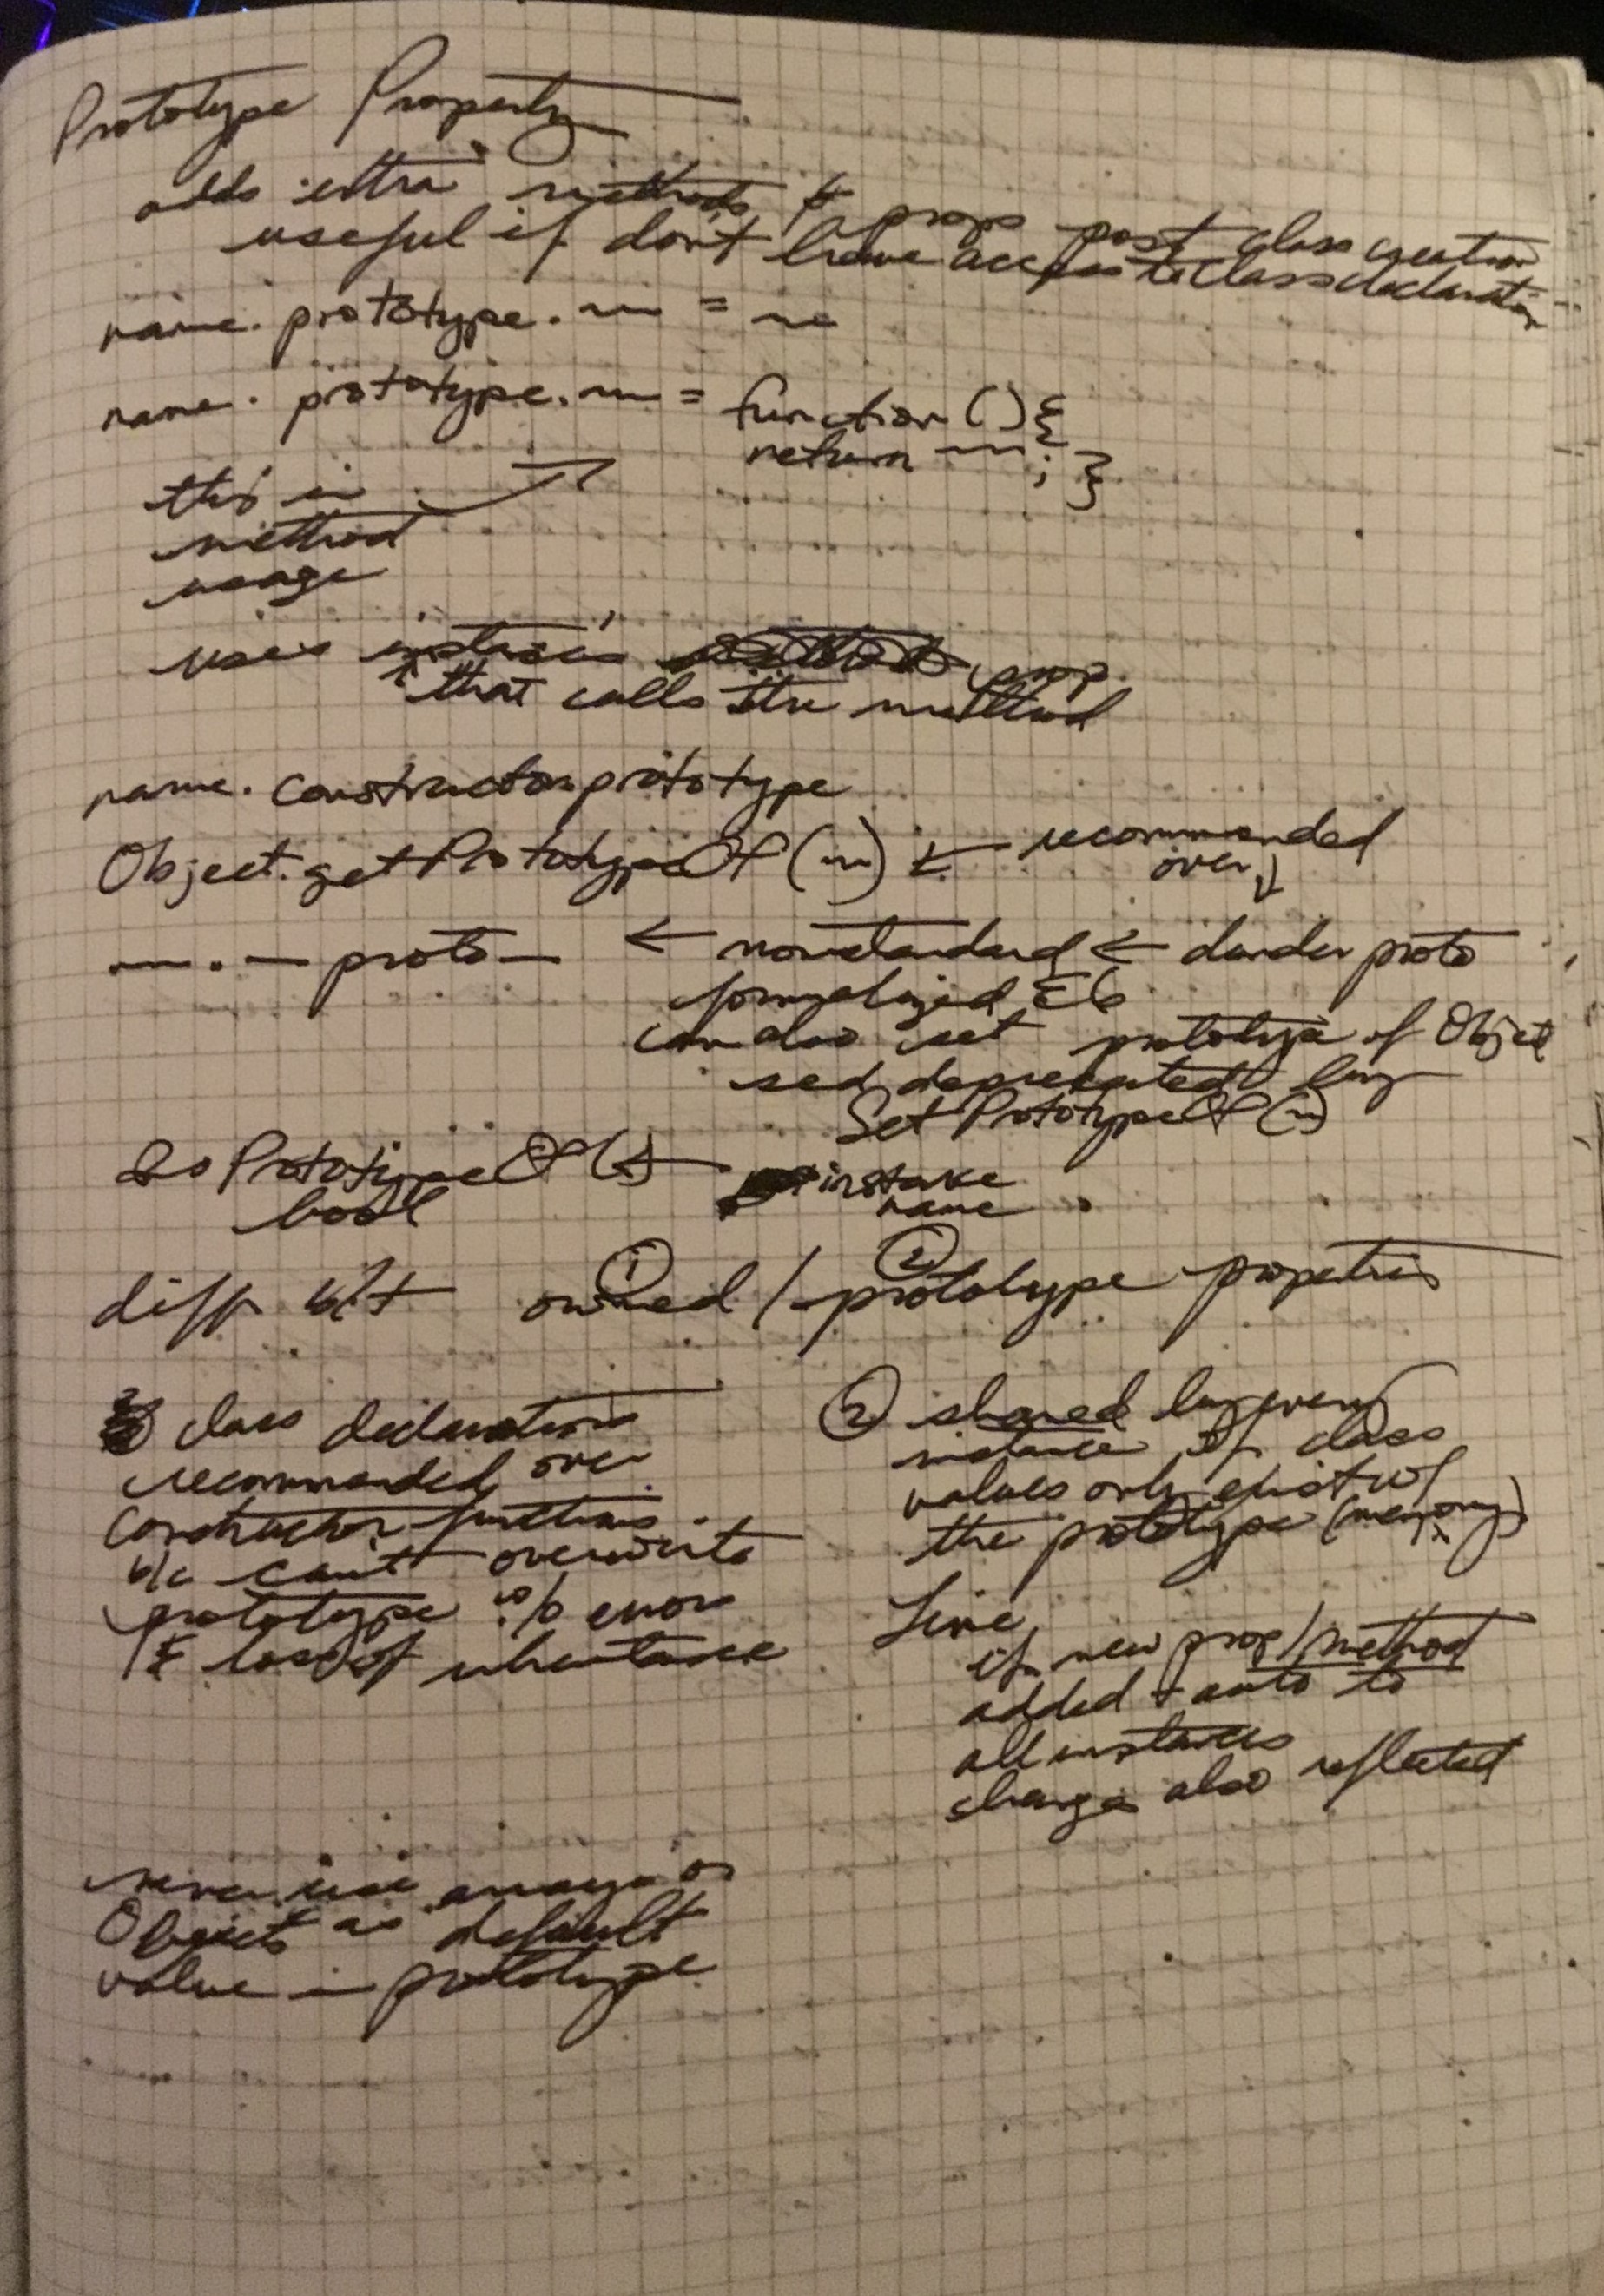 Prototype Property
adds extra methods & props post class creation
useful if don't have access to class declaration
name. prototype. ~ = ~
name. prototype. ~ = function () {
return ~ ; }
this is
method
usage
uses prop
that calls the method
name. constructor prototype
Object. getPrototypeOf (~) ← recommended
over ↓
~ . __proto__ ← nonstandard ← dunder proto
formalized E6
can also set prototype of Object
deprecated by
SetPrototypeOf (~)
isPrototypeOf () ← instance
bool name
diff b/t ① owned / ② prototype properties
class declarations
recommended over
constructor functions
b/c can't overwrite
prototype error
& loss of inheritance
② shared by every
instance of class
values only exist w/
the prototype (memory)
Live
if new prop/method
added → auto to
all instances
changes also reflected
never use arrays or
Objects as default
value in prototype